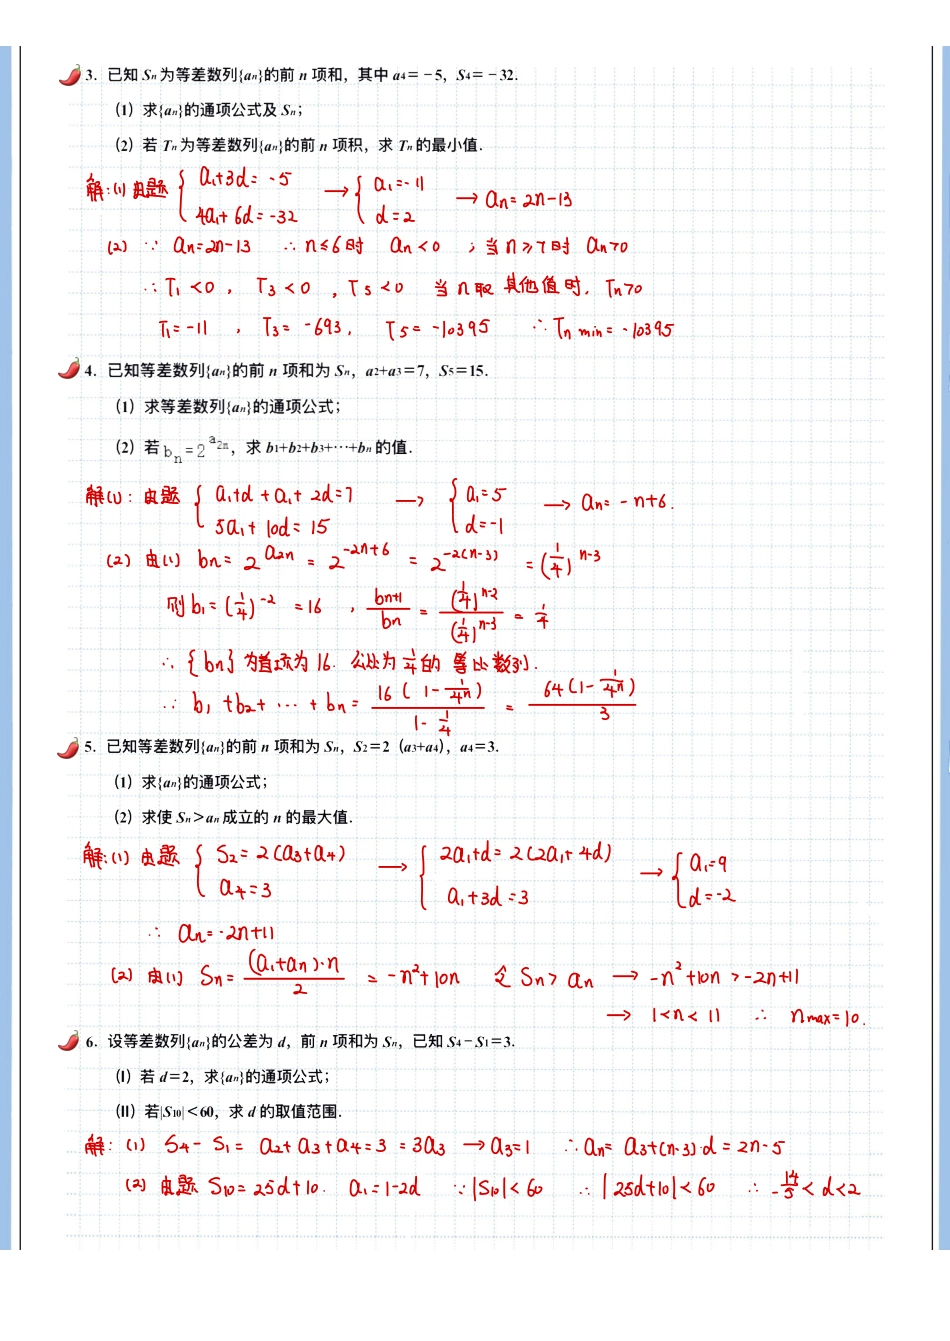 3. 已知 Sn 为等差数列{an}的前 n 项和，其中 a4=－5，S4=－32.
(1) 求{an}的通项公式及 Sn；
(2) 若 Tn 为等差数列{an}的前 n 项积，求 Tn 的最小值.
解:(1) 由题 { a1+3d=-5 , 4a1+6d=-32 → { a1=-11 , d=2 → an=2n-13
(2) ∵ an=2n-13 ∴ n≤6时 an<0 ; 当n≥7时 an>0
∴ T1<0, T3<0, T5<0 当n取其他值时, Tn>0
T1=-11, T3=-693, T5=-10395 ∴ Tn min=-10395
4. 已知等差数列{an}的前 n 项和为 Sn，a2+a3=7，S5=15.
(1) 求等差数列{an}的通项公式；
(2) 若 bn=2^a2n，求 b1+b2+b3+…+bn 的值.
解(1): 由题 { a1+d+a1+2d=7 , 5a1+10d=15 → { a1=5 , d=-1 → an=-n+6.
(2) 由(1) bn=2^a2n=2^(-2n+6)=2^(-2(n-3))=(1/4)^(n-3)
则b1=(1/4)^-2=16, bn+1/bn=(1/4)^(n-2)/(1/4)^(n-3)=1/4
∴ {bn}为首项为16. 公比为1/4的 等比数列.
∴ b1+b2+…+bn=16(1-1/4^n)/(1-1/4)=64(1-1/4^n)/3
5. 已知等差数列{an}的前 n 项和为 Sn，S2=2（a3+a4），a4=3.
(1) 求{an}的通项公式；
(2) 求使 Sn>an 成立的 n 的最大值.
解:(1) 由题 { S2=2(a3+a4) , a4=3 → { 2a1+d=2(2a1+4d) , a1+3d=3 → { a1=9 , d=-2
∴ an=-2n+11
(2) 由(1) Sn=(a1+an)·n/2=-n²+10n 令 Sn>an → -n²+10n>-2n+11
→ 1<n<11 ∴ nmax=10.
6. 设等差数列{an}的公差为 d，前 n 项和为 Sn，已知 S4－S1=3.
(Ⅰ) 若 d=2，求{an}的通项公式；
(Ⅱ) 若|S10|<60，求 d 的取值范围.
解: (1) S4-S1=a2+a3+a4=3=3a3 → a3=1 ∴ an=a3+(n-3)·d=2n-5
(2) 由题 S10=25d+10. a1=1-2d ∵ |S10|<60 ∴ |25d+10|<60 ∴ -14/5<d<2